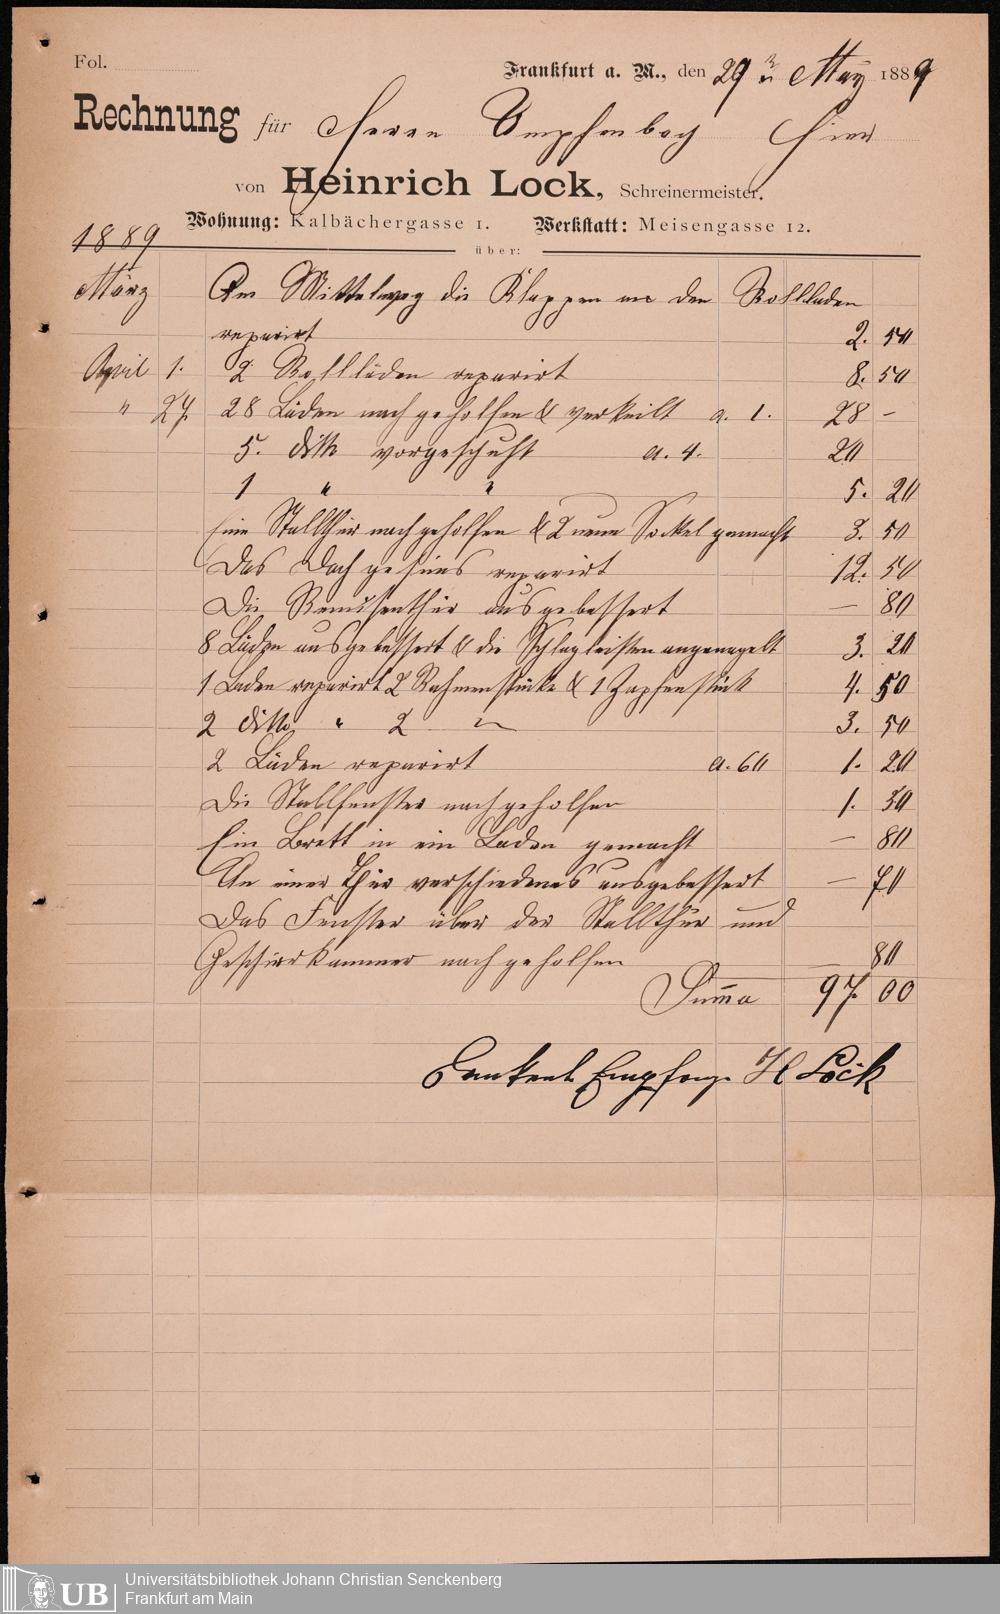 Fol.
Frankfurt a. M., den 29 May 1889
Rechnung für Herrn Umpfenbach Hier
von Heinrich Lock, Schreinermeister.
Wohnung: Kalbächergasse 1. Werkstatt: Meisengasse 12.
1889
über:
März Am Mittelweg die Klappen an den Rollladen
reparirt 2. 50
April 1. 2 Rollläden reparirt 8. 50
" 27. 28 Läden nachgeholfen & verkeilt a. 1. 28 -
5. ditto vorgeschuht a. 4. 20
1 " " 5. 20
Eine Stallthür nachgeholfen & 2 neue Sockel gemacht 3. 50
Das Dachgesims reparirt 12. 50
Die Remisenthür ausgebessert — 80
8 Läden ausgebessert & die Schlagleisten angenagelt 3. 20
1 Laden reparirt 2 Rahmenstücke & 1 Zapfenstück 4. 50
2 ditto " 2 " 3. 50
2 Läden reparirt a. 60 1. 20
Die Stallfenster nachgeholfen 1. 30
Ein Brett in ein Laden gemacht — 80
An einer Thür verschiedenes ausgebessert — 70
Das Fenster über der Stallthür und
Geschirrkammer nachgeholfen — 80
Summa 97. 00
Dankend Empfangen H Lock
UB
Universitätsbibliothek Johann Christian Senckenberg
Frankfurt am Main